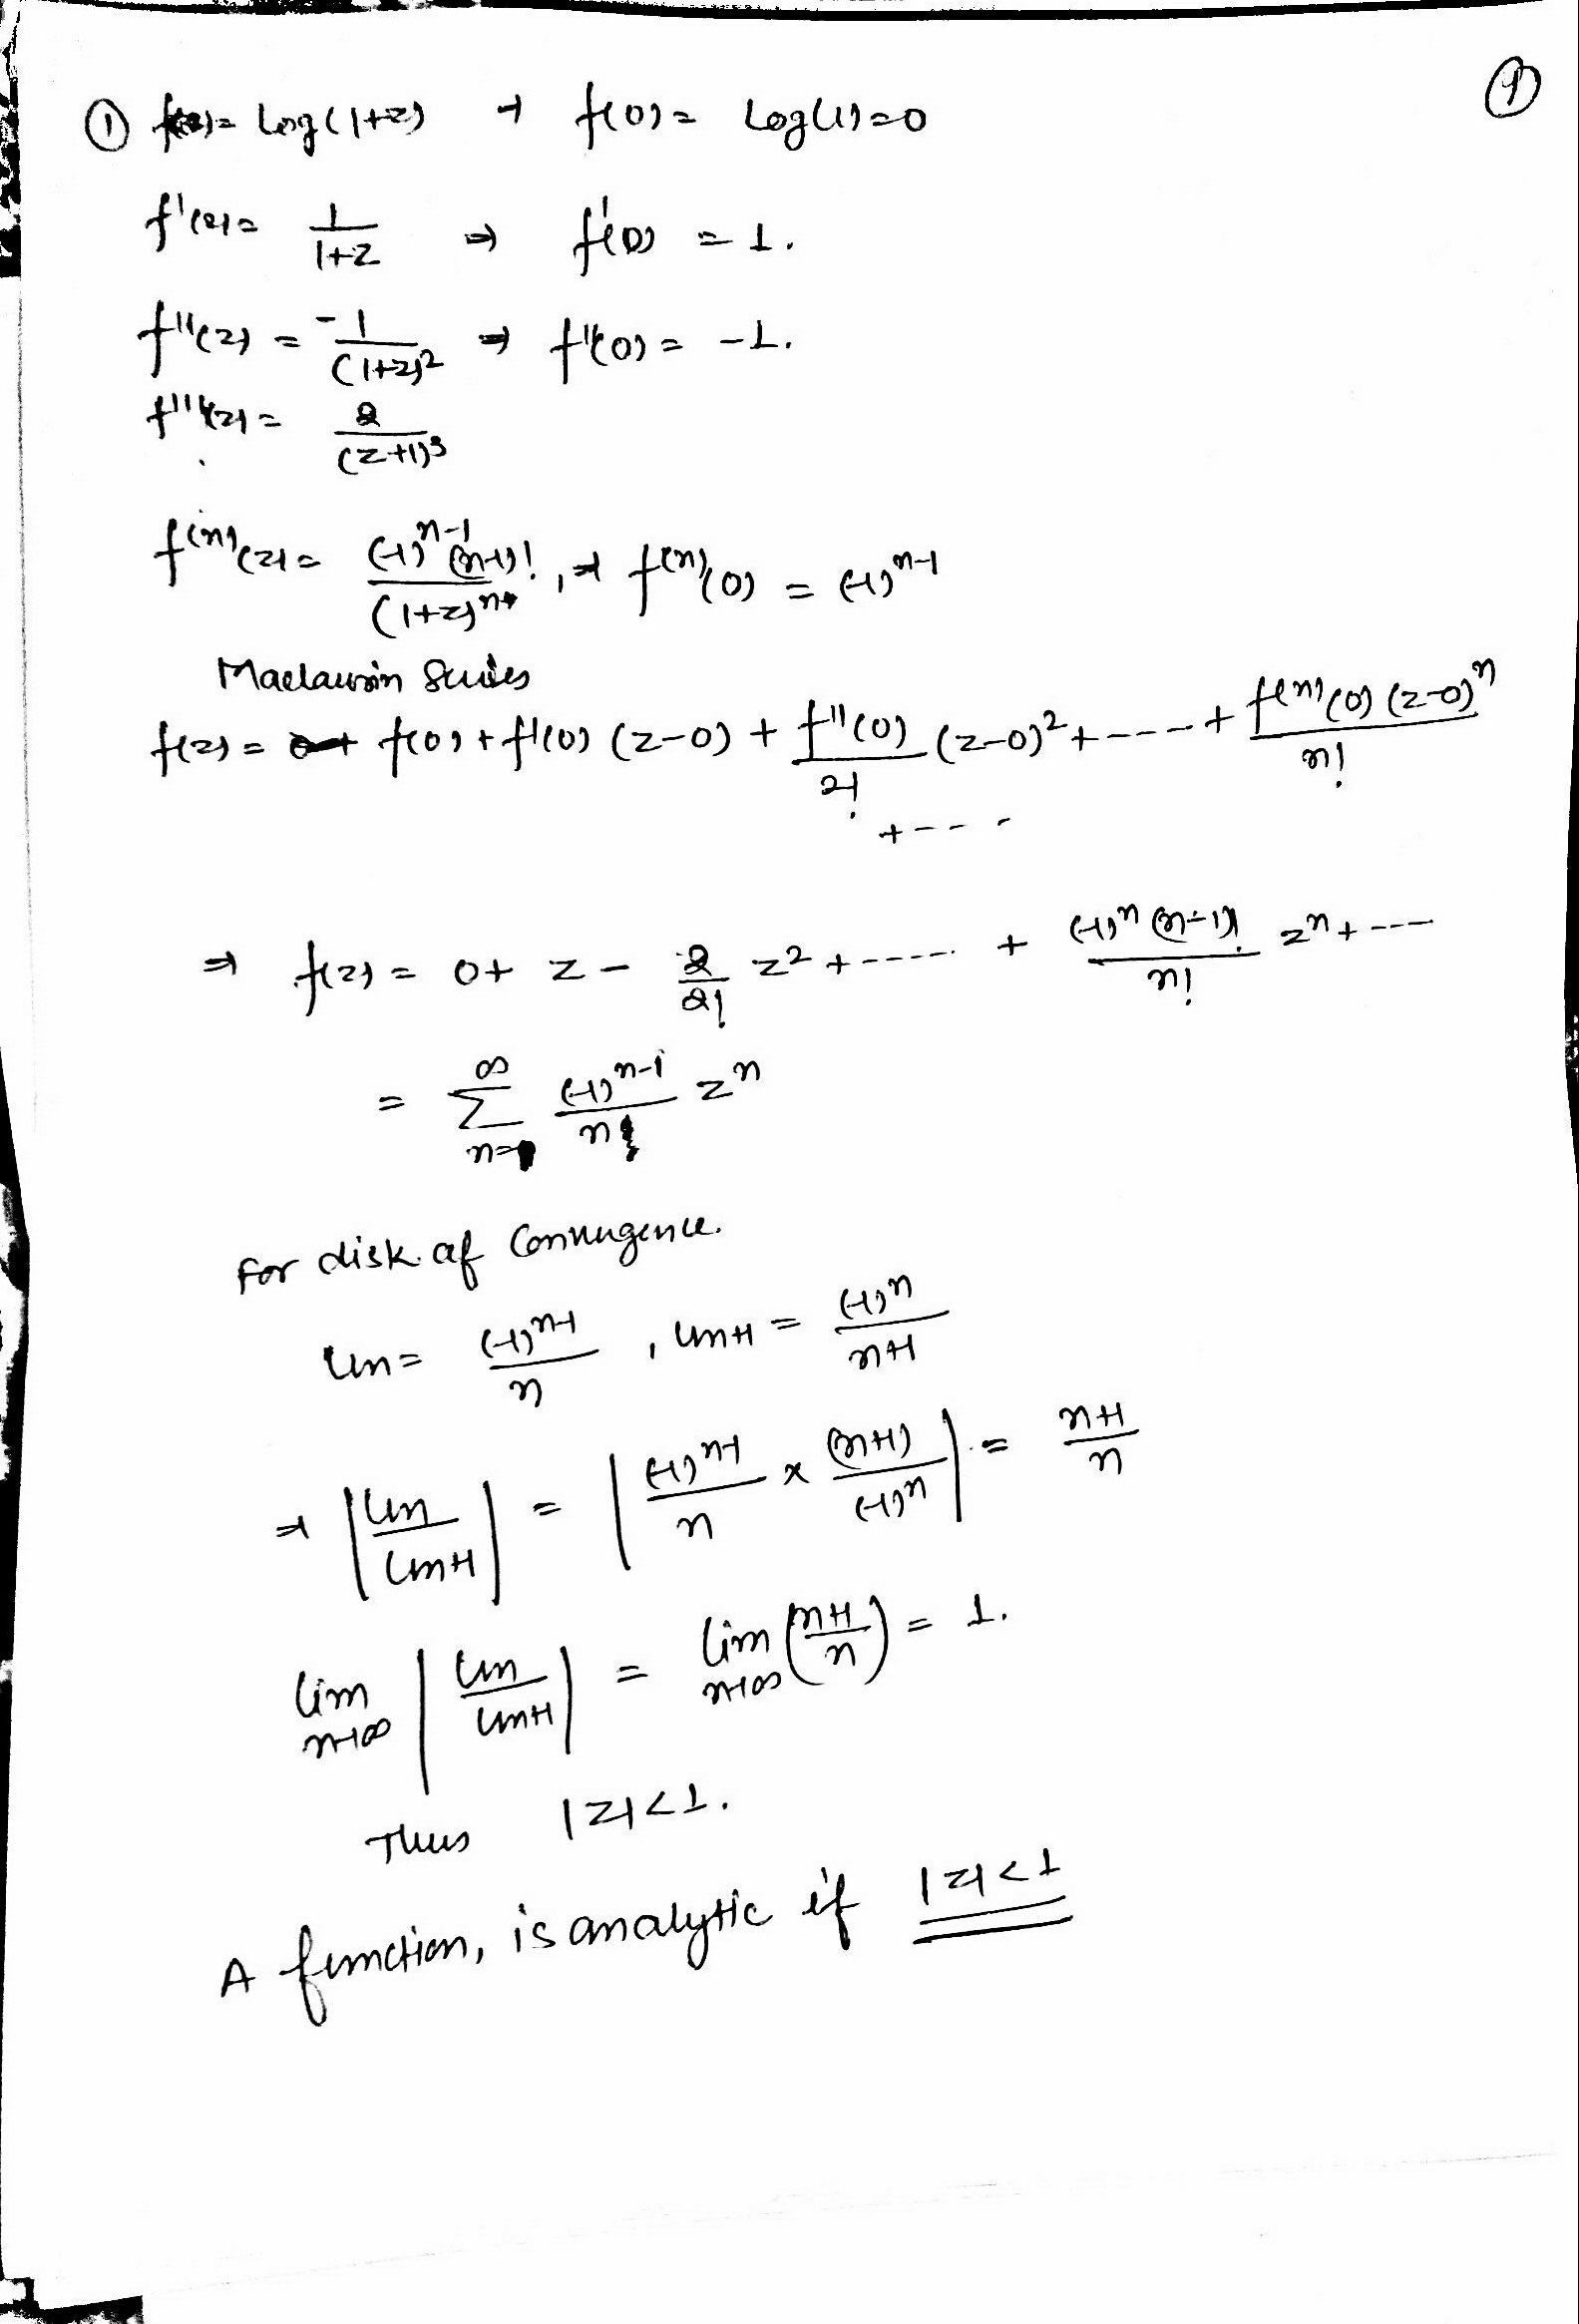 ①
① f(z)= Log(1+z) → f(0)= Log(1)=0
f'(z)= 1/(1+z) ⇒ f'(0) = 1.
f''(z) = -1/(1+z)² ⇒ f''(0)= -1.
f'''(z)= 2/(z+1)³
f⁽ⁿ⁾(z)= (-1)ⁿ⁻¹(n-1)!/(1+z)ⁿ, ⇒ f⁽ⁿ⁾(0) = (-1)ⁿ⁻¹
Maclaurin Series
f(z) = f(0) + f'(0) (z-0) + f''(0)/2! (z-0)² + ---- + f⁽ⁿ⁾(0) (z-0)ⁿ/n!
+ ---
⇒ f(z) = 0 + z - 2/2! z² + ----- + (-1)ⁿ (n-1)!/n! zⁿ + ---
= ∑_{n=1}^{∞} (-1)ⁿ⁻¹/n zⁿ
For disk of Convergence.
Un = (-1)ⁿ⁻¹/n , Un+1 = (-1)ⁿ/(n+1)
⇒ |Un/Un+1| = |(-1)ⁿ⁻¹/n × (n+1)/(-1)ⁿ| = (n+1)/n
lim n→∞ |Un/Un+1| = lim n→∞ ((n+1)/n) = 1.
Thus |z|<1.
A function, is analytic if |z|<1